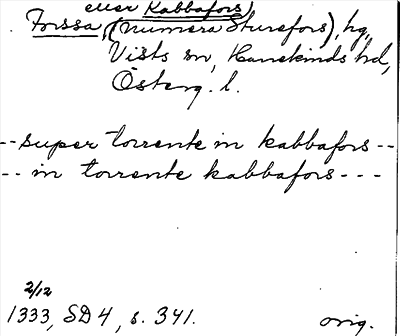 eller Kabbafors)
Forssa, (numera Sturefors), hg,
Vists sn, Hanekinds hd,
Österg. l.
--super torrente in kabbafors--
-- in torrente kabbafors---
2/12
1333, SD 4, s. 341. orig.